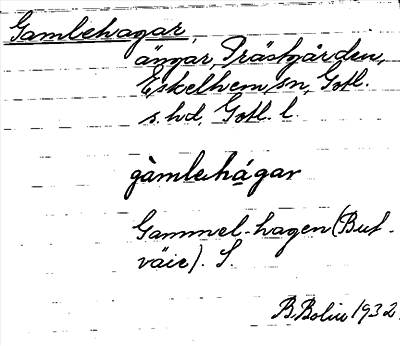 Gamlehagar,
ängar, Prästgården,
Eskelhem sn, Gotl.
s. hd, Gotl. l.
gàmlehágar
Gammel-hagen (But-
väie). S.
B. Bolin 1932.